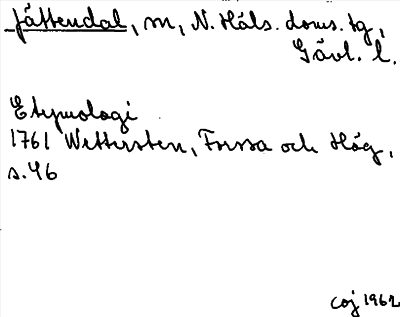 Jättendal, m, N. Häls. doms. tg,
Gävl. l.
Etymologi
1761 Wettersten, Forssa och Hög,
s. 46
coj 1962